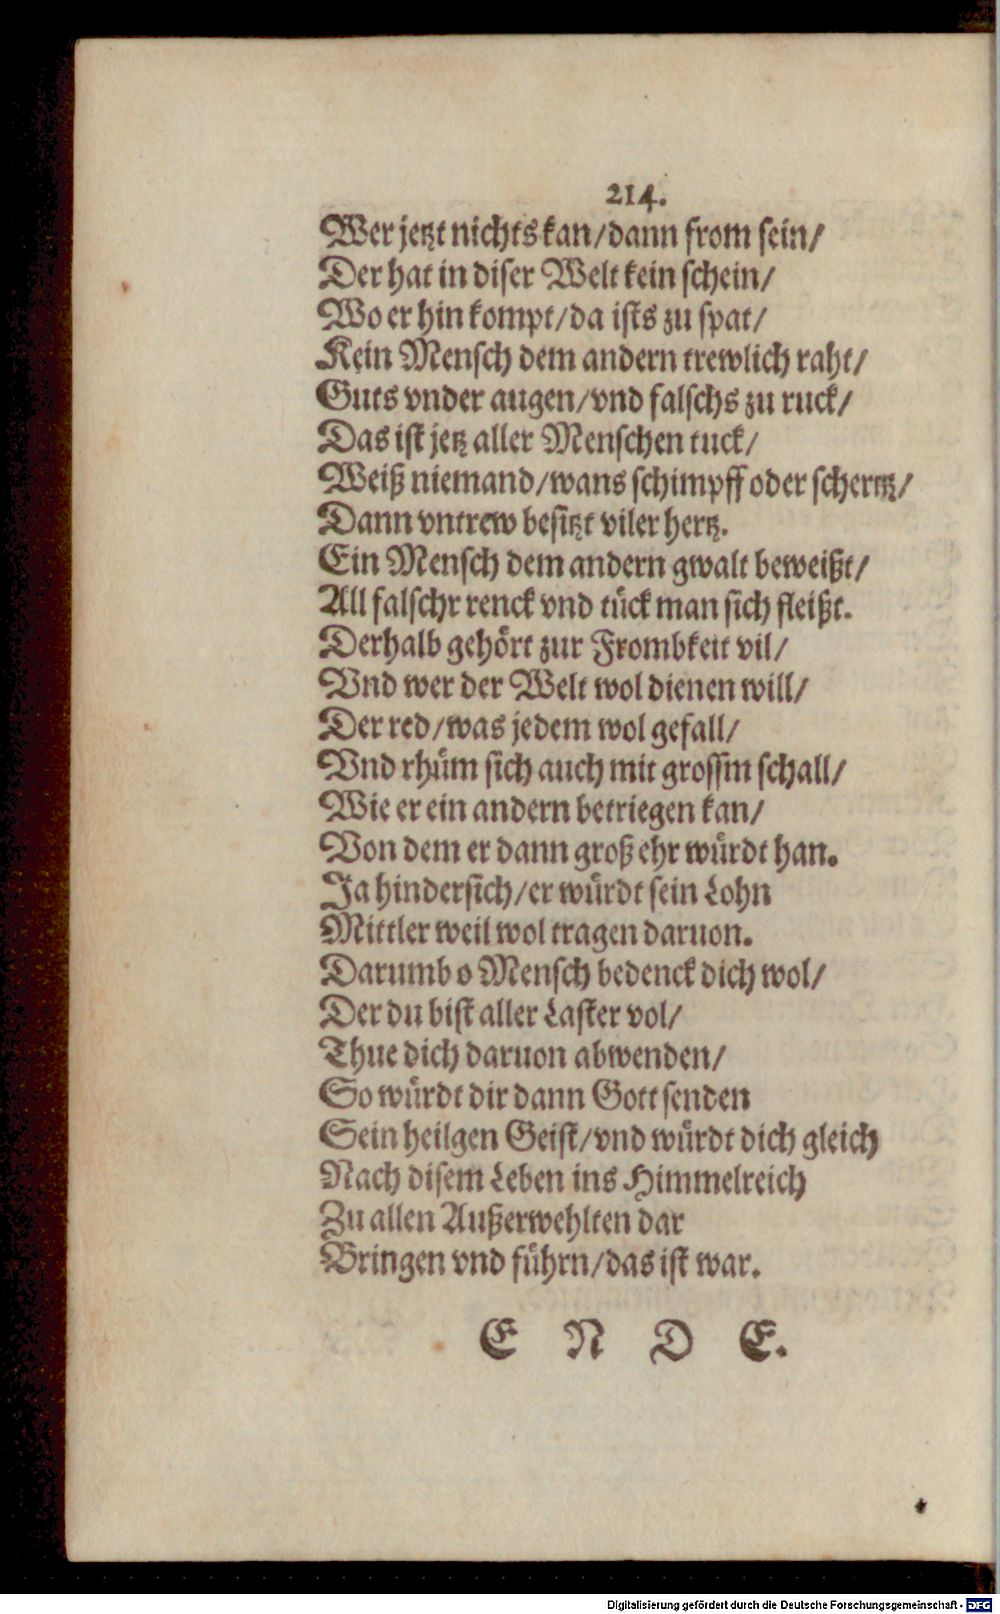 214.
Wer jetzt nichts kan/dann from sein/
Der hat in diser Welt kein schein/
Wo er hin kompt/da ists zu spat/
Kein Mensch dem andern trewlich raht/
Guts vnder augen/vnd falschs zu ruck/
Das ist jetz aller Menschen tuck/
Weiß niemand/wans schimpff oder schertz/
Dann vntrew besitzt viler hertz.
Ein Mensch dem andern gwalt beweißt/
All falschr renck vnd tück man sich fleißt.
Derhalb gehört zur Frombkeit vil/
Vnd wer der Welt wol dienen will/
Der red/was jedem wol gefall/
Vnd rhüm sich auch mit grossm schall/
Wie er ein andern betriegen kan/
Von dem er dann groß ehr würdt han.
Ja hindersich/er würdt sein Lohn
Mittler weil wol tragen daruon.
Darumb o Mensch bedenck dich wol/
Der du bist aller Laster vol/
Thue dich daruon abwenden/
So würdt dir dann Gott senden
Sein heilgen Geist/vnd würdt dich gleich
Nach disem Leben ins Himmelreich
Zu allen Außerwehlten dar
Bringen vnd führn/das ist war.
E N D E.
Digitalisierung gefördert durch die Deutsche Forschungsgemeinschaft - DFG